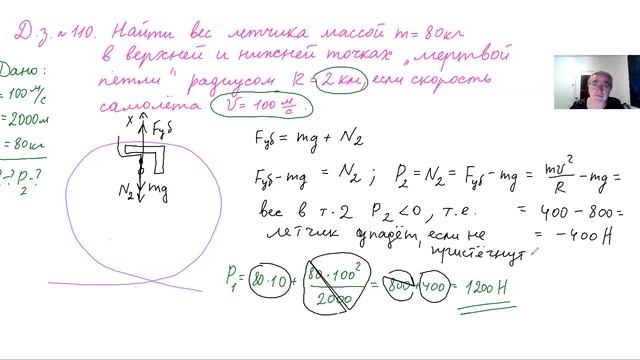 Д.з. №110. Найти вес летчика массой m = 80 кг
в верхней и нижней точках „мертвой
петли" радиусом R = 2 км, если скорость
самолёта V = 100 м/с.
Дано:
= 100 м/с
= 2000 м
= 80 кг
? P₂ ?
X Fцб
N₂ mg
Fцб = mg + N₂
Fцб - mg = N₂ ; P₂ = N₂ = Fцб - mg = mv²/R - mg =
вес в т.2 P₂ < 0, т.е. = 400 - 800 =
летчик упадёт, если не = - 400 Н
пристёгнут
P₁ = 80·10 + 80·100²/2000 = 800 + 400 = 1200 Н